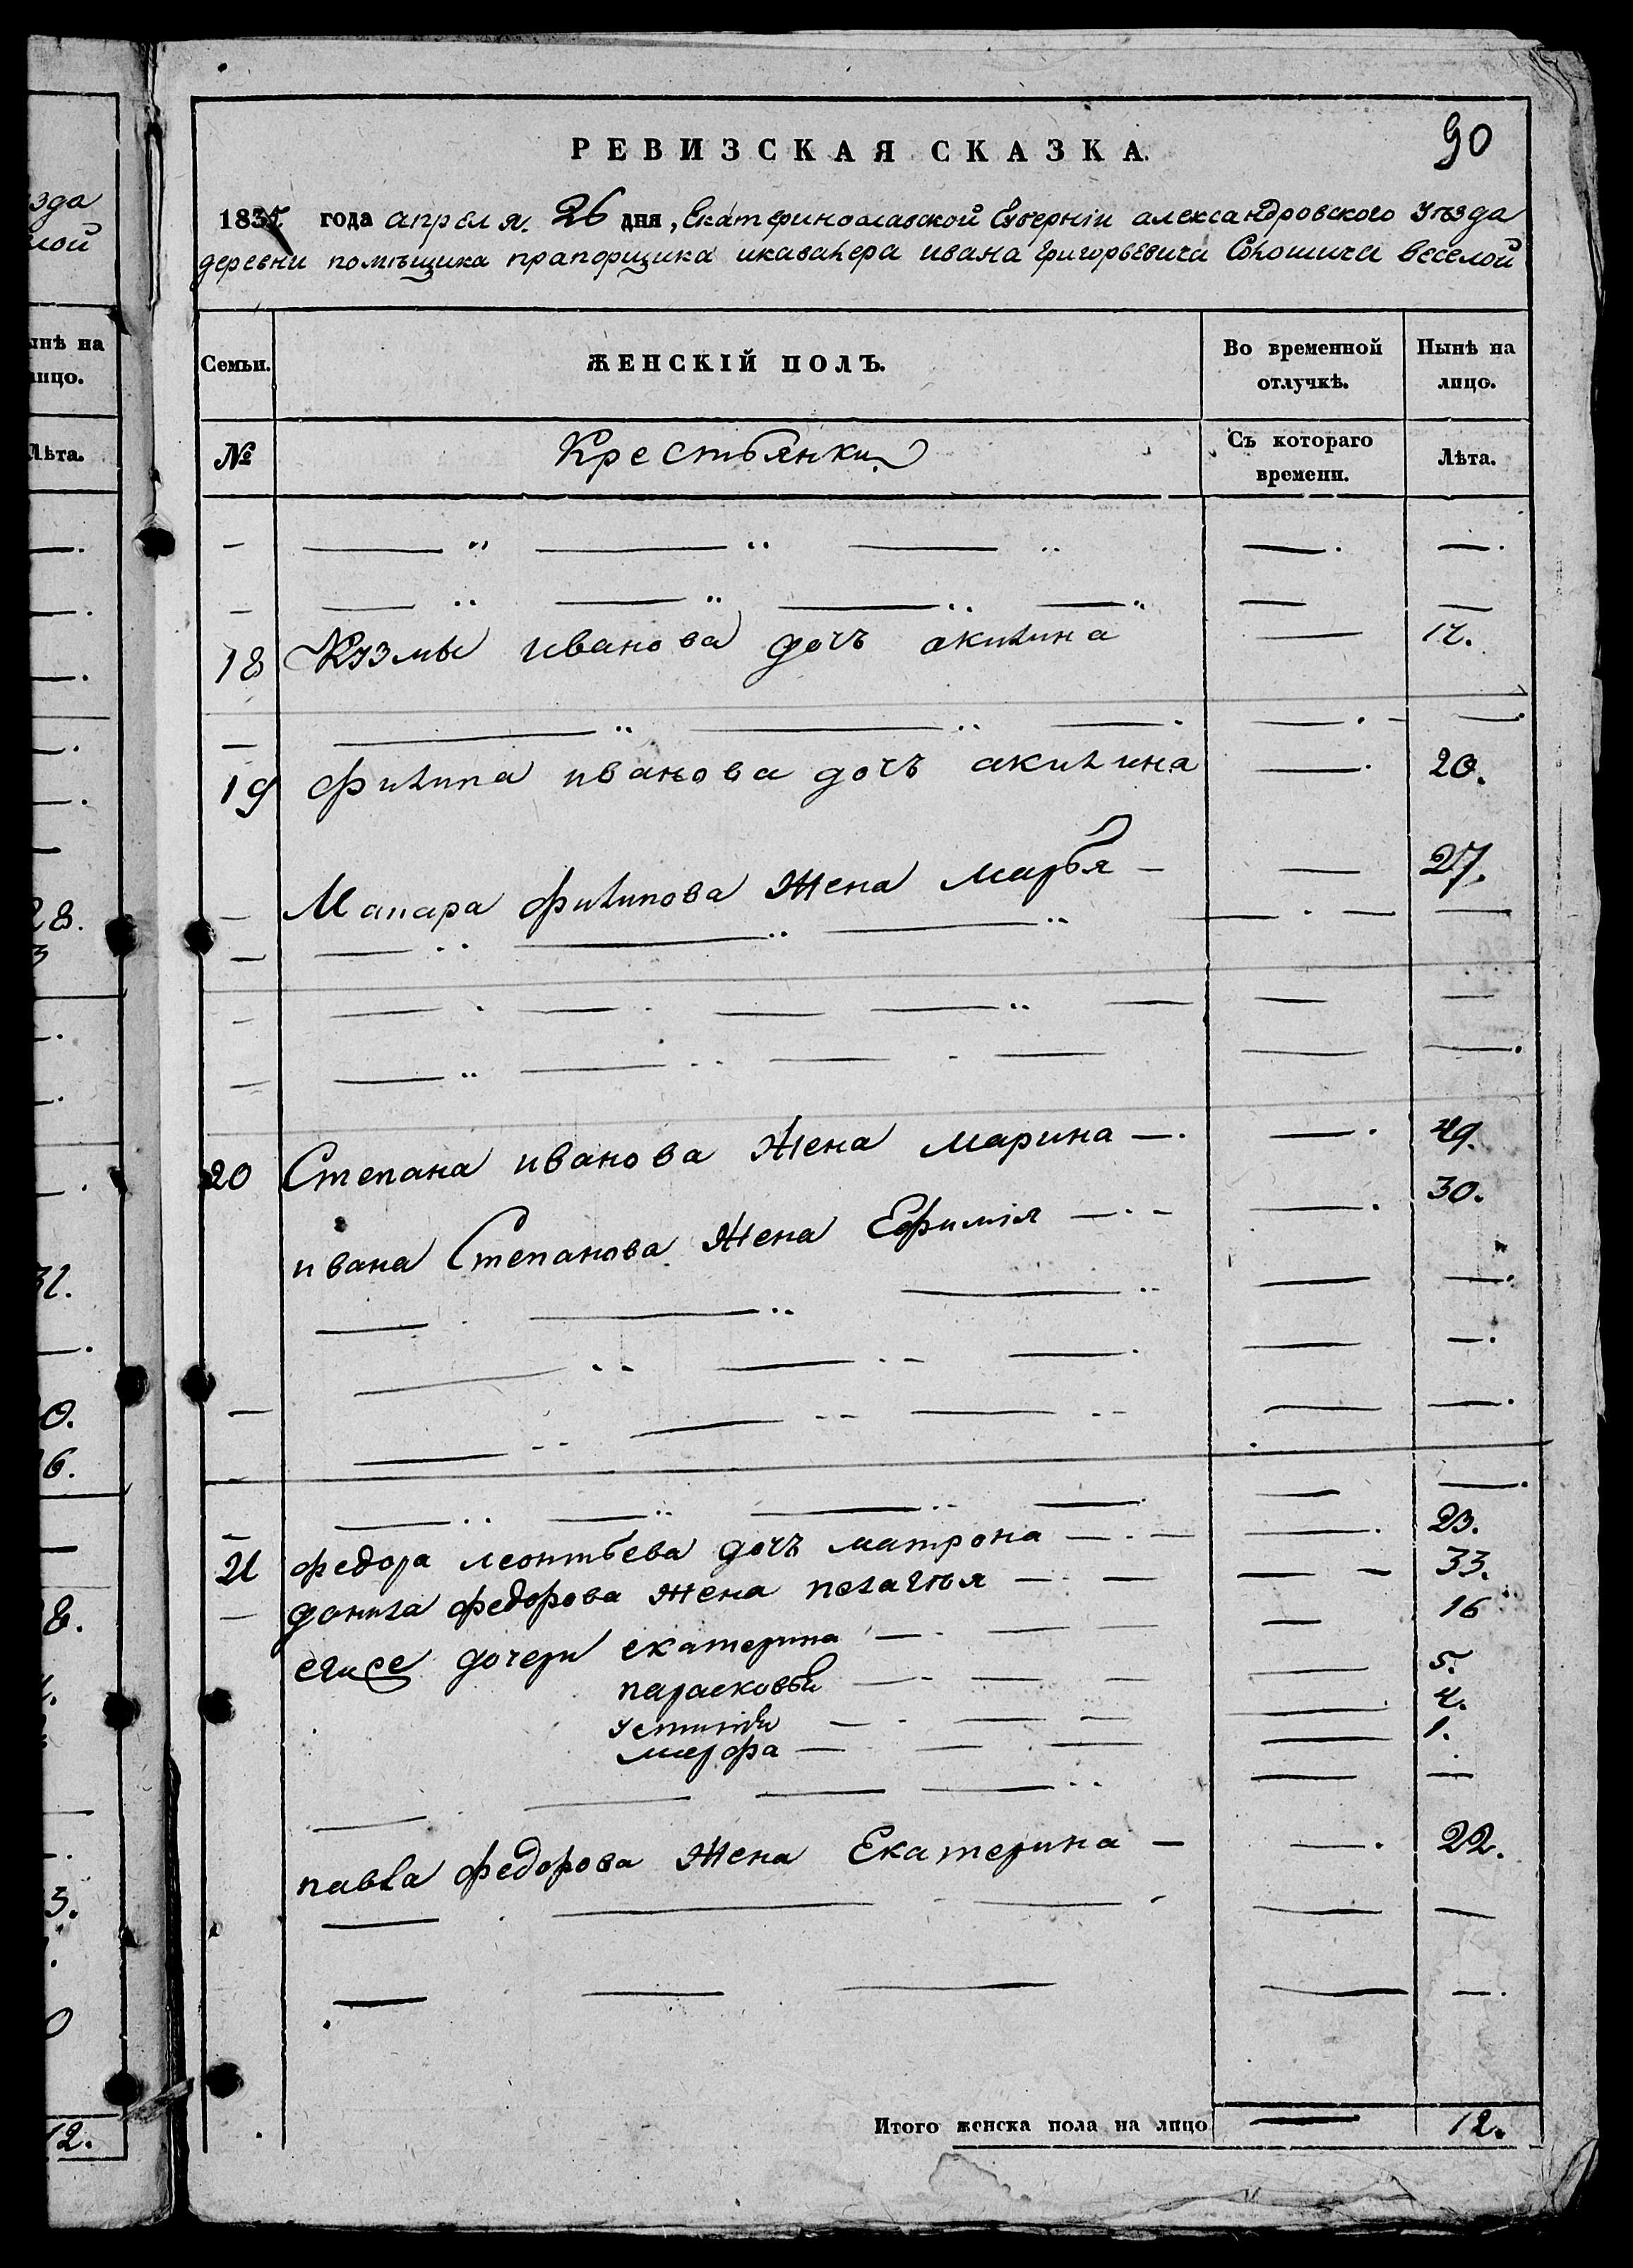 90
РЕВИЗСКАЯ СКАЗКА.
1835. года апреля. 26 дня, Екатеринославской Губерніи александровского уѣзда
деревни помѣщика прапорщика икавалера ивана григорьевича веселой
Семьи. ЖЕНСКІЙ ПОЛЪ. Во временной отлучкѣ. Нынѣ на лицо.
№ Крестьянки Съ котораго времени. Лѣта.
— — " — " — " — . — .
— — " — " — " — " — —
18 Кузмы иванова дочъ акилина — 14.
— — " — " — . — . - — .
19 Филипа иванова дочъ акилина — . 20.
— Макара филипова жена марья — — 27.
— — " — " — " — . — —
— — . — . — — " — — —
— — " — " — . — — — .
20 Степана иванова жена марина — . — . 49.
ивана Степанова жена Ефимія — . - — . 30.
— . — " — " — — .
— " — " — . — — .
— — " — " — " — — .
— — " — " — " — . — — .
21 федора леонтьева дочъ матрона — . — — . 23.
— данила федорова жена пелагѣя — . — — - 33.
егисе дочери екатерина — . — — — 16
парасковья — . — — — 5.
устинья — . — — — 4.
марфа — . — . — — 1.
— . — — — " — —
павла федорова жена Екатерина — — . 22.
— . — . — . — —
— — — — — .
Итого женска пола на лицо — 12.
зда
лой
ынѣ на
лицо.
Лѣта.
28.
3
0.
6.
8.
3.
0
12.